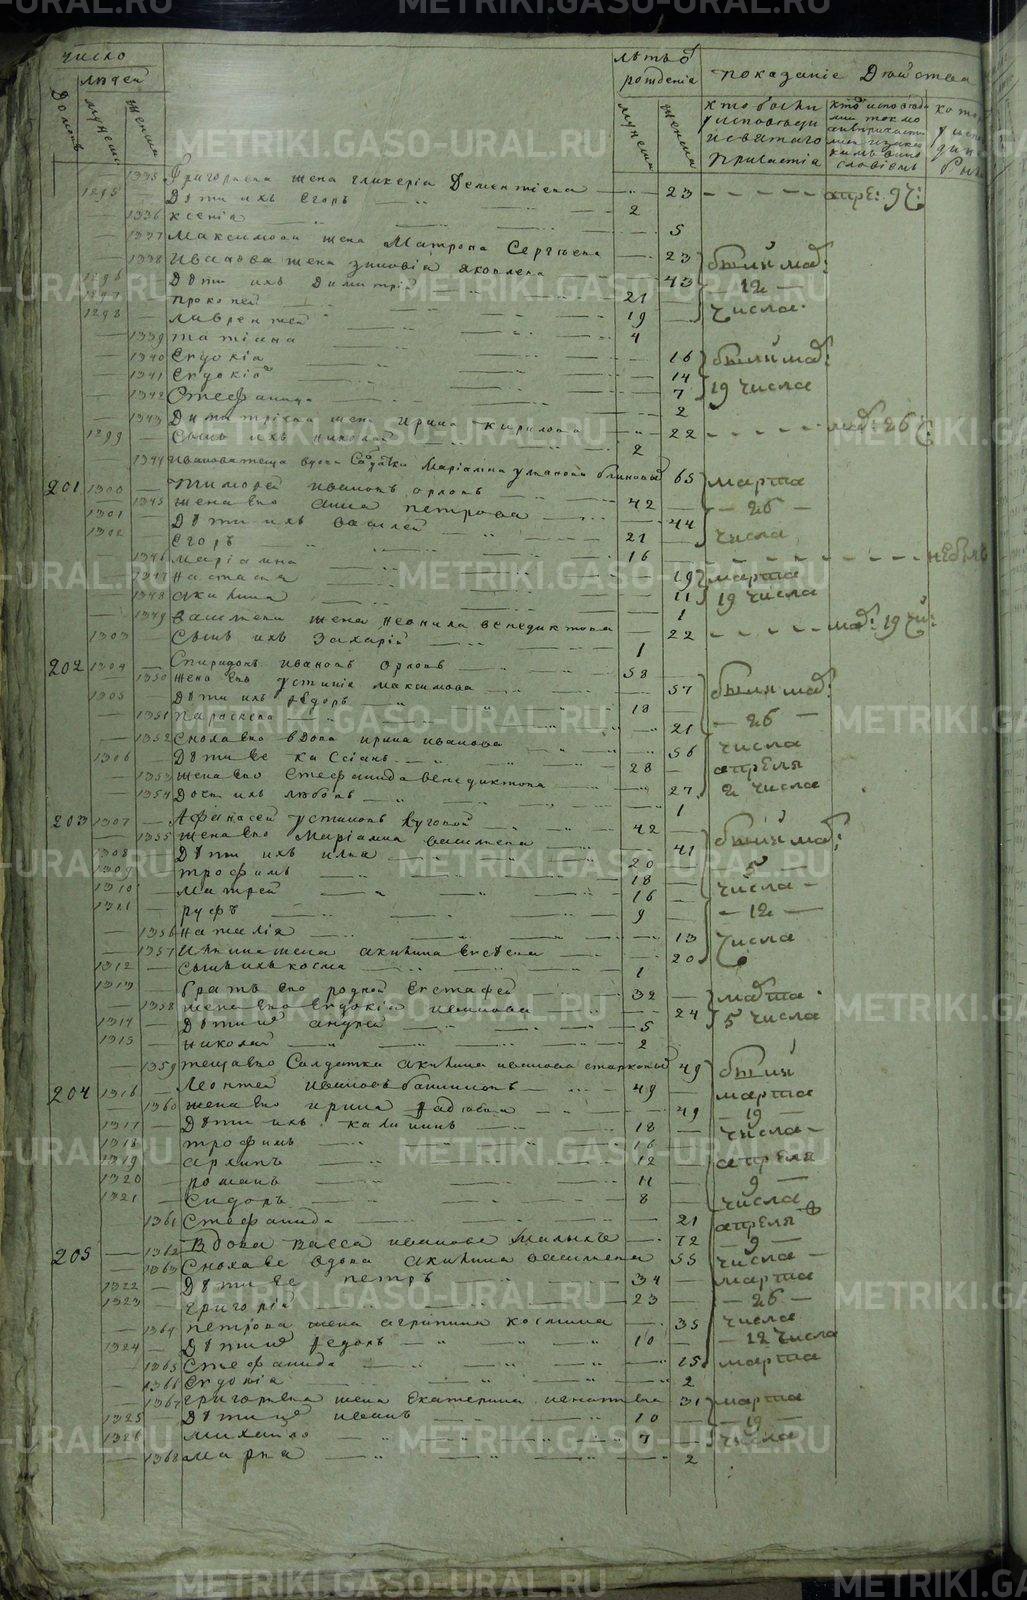 число
людей
домовъ
мужеска
женска
лѣтъ от
рождения
мужеска
женска
показаніе Действа
кто были
у исповеди
и святаго
причастіа
1335 Григорьева жена Гликеріа Дементиева 23 апре: 9 ч:
1295 Дѣти ихъ Егоръ 2
1336 Ксеніа 5
1337 Максимова жена Матрона Сергѣева 23 были мар:
1338 Иванова жена Зиновіа Яковлева 43 12
1296 Дѣти ихъ Димитрій 21 числа
1297 Прокопей 19
1298 Лаврентей 4
1339 Татіана 16 были мар:
1340 Евдокіа 14
1341 Евдокіа 7 19 числа
1342 Стефанида 2
1343 Димитріева жена Ирина Кирилова 22 мар: 26 ч:
1299 Сынъ ихъ Николай 2
1344 Иванова теща вдова Солдатка Маріамна 65 марта
201 1300 Тимофей Ивановъ Орловъ 42 26
1345 Жена его Анна Петрова 44 числа
1301 Дѣти ихъ Василей 21
1302 Егоръ 16 небылъ
1346 Маріамна 19 марта
1347 Настасиа 11 19 числа
1348 Акилина 1
1349 Васильева жена Неонила Венедиктова 22 мар: 19 чи:
1303 Сынъ ихъ Захарій 1
202 1304 Спиридонъ Ивановъ Орловъ 58
1350 Жена его Устиніа Максимова 57 были мар:
1305 Дѣти ихъ Федоръ 18
1351 Параскева 21 26
1352 Сноха его вдова Ирина Иванова 56 числа
1306 Дѣти ее Кассіанъ 28 апреля
1353 Жена его Стефанида Венедиктова 27 2 числа
1354 Дочь ихъ Любовь 1
203 1307 Афанасей Устиновъ 42
1355 Жена его Маріамна Васильева 41 были мар:
1308 Дѣти ихъ Илиа 20 5
1309 Трофимъ 18
1310 Матфей 16 числа
1311 Руфъ 9 12
1356 Наталіа 13 числа
1357 Ильина жена Акилина Евсѣева 20
1312 Сынъ ихъ Косма 1
1313 Братъ его родной Евстафей 32 марта
1358 Жена его Евдокіа Иванова 24 5 числа
1314 Дѣти их Андрей 5
1315 Николай 2
1359 Теща его Солдатка Акилина Иванова 49 были
204 1316 Леонтей Ивановъ 49 марта
1360 Жена его Ирина 49 19
1317 Дѣти ихъ Калинникъ 18 числа
1318 Трофимъ 16
1319 Архипъ 12 апреля
1320 Романъ 11 9
1321 Сидоръ 8 числа
1361 Стефанида 21 апреля
205 1362 Вдова Васса Иванова Малыхъ 72 9
1363 Сноха ее вдова Акилина Васильева 55 числа
1322 Дѣти ее Петръ 34 марта
1323 Григорій 23 26
1364 Петрова жена Агрипина Космина 35 числа
1324 Дѣти их Федоръ 10 12 числа
1365 Стефанида 15 марта
1366 Евдокіа 2
1367 Григорьева жена Екатерина Игнатьева 31 марта
1325 Дѣти их Иванъ 10 19
1326 Михайло 7 числа
1368 Марѳа 2
METRIKI.GASO-URAL.RU